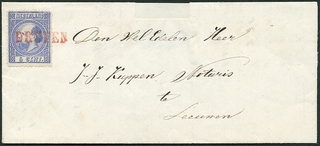 NEDERLAND
5 CENT.
Den Wel Edelen Heer
J. J. Kuppen Notaris
te
Leeuwen